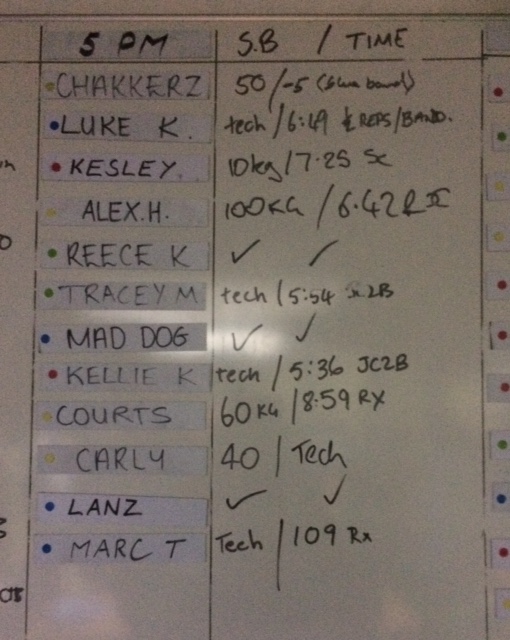 5 PM S.B / TIME
CHAKKERZ 50/-5 (blue band)
LUKE K. tech/6:49 REPS/BAND.
KESLEY. 10kg/7:25 Sc
ALEX.H. 100KG/6.42
REECE K ✓ ✓
TRACEY M tech/5:54
MAD DOG ✓ ✓
KELLIE K tech/5:36 JC2B
COURTS 60KG/8:59 RX
CARLY 40/Tech
LANZ ✓ ✓
MARC T Tech/109 Rx